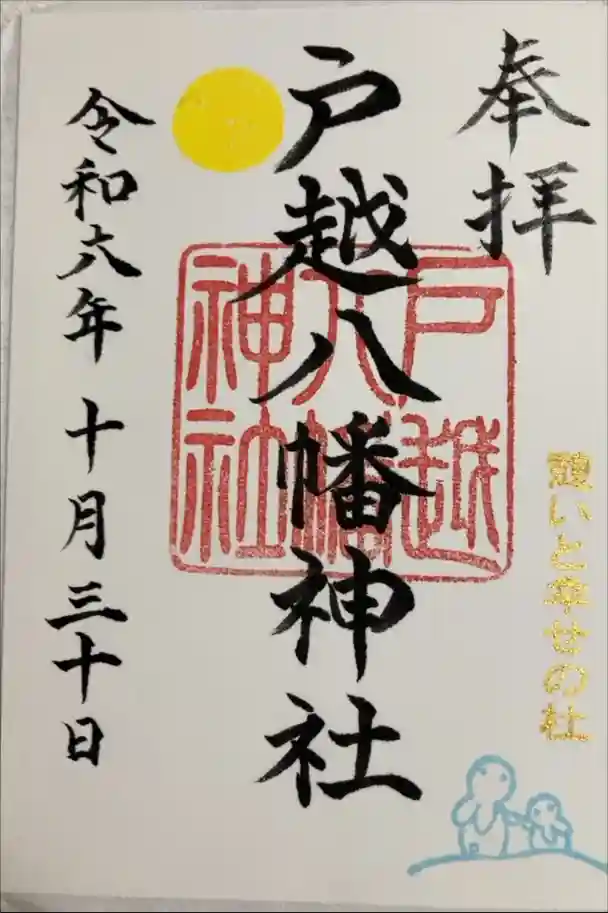 奉拝
戸越八幡神社
戸越
八幡
神社
令和六年 十月三十日
憩いと幸せの杜